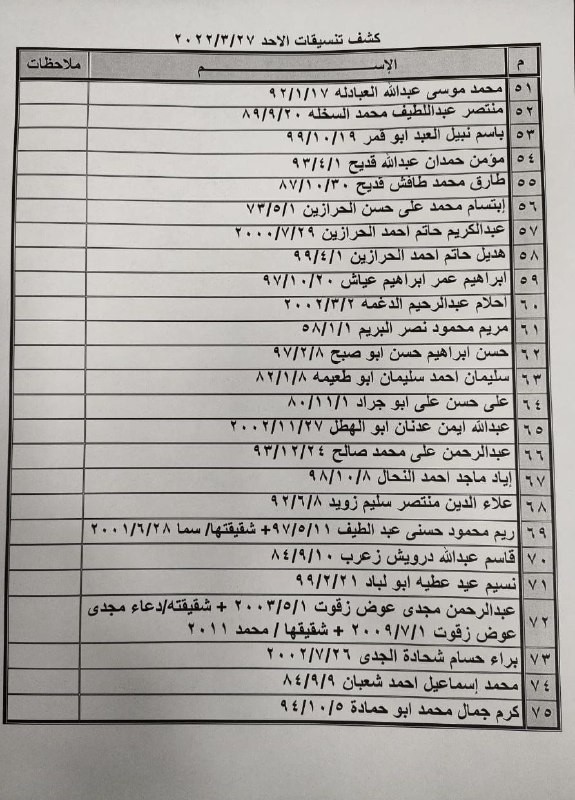 كشف تنسيقات الاحد ٢٠٢٢/٣/٢٧
م الإســـــــــــم ملاحظات
٥١ محمد موسى عبدالله العبادله ٩٢/١/١٧
٥٢ منتصر عبداللطيف محمد السخله ٨٩/٩/٢٠
٥٣ باسم نبيل العبد ابو قمر ٩٩/١٠/١٩
٥٤ مؤمن حمدان عبدالله قديح ٩٣/٤/١
٥٥ طارق محمد طافش قديح ٨٧/١٠/٣٠
٥٦ إبتسام محمد على حسن الحرازين ٧٣/٥/١
٥٧ عبدالكريم حاتم احمد الحرازين ٢٠٠٠/٧/٢٩
٥٨ هديل حاتم احمد الحرازين ٩٩/٤/١
٥٩ ابراهيم عمر ابراهيم عياش ٩٧/١٠/٢٠
٦٠ احلام عبدالرحيم الدغمه ٢٠٠٢/٣/٢
٦١ مريم محمود نصر البريم ٥٨/١/١
٦٢ حسن ابراهيم حسن ابو صبح ٩٧/٢/٨
٦٣ سليمان احمد سليمان ابو طعيمه ٨٢/١/٨
٦٤ على حسن على ابو جراد ٨٠/١١/١
٦٥ عبدالله ايمن عدنان ابو الهطل ٢٠٠٢/١١/٢٧
٦٦ عبدالرحمن على محمد صالح ٩٣/١٢/٢٤
٦٧ إياد ماجد احمد النحال ٩٨/١٠/٨
٦٨ علاء الدين منتصر سليم زويد ٩٢/٦/٨
٦٩ ريم محمود حسنى عبد الطيف ٩٧/٥/١١+ شقيقتها/ سما ٢٠٠١/٦/٢٨
٧٠ قاسم عبدالله درويش زعرب ٨٤/٩/١٠
٧١ نسيم عيد عطيه ابو لباد ٩٩/٢/٢١
٧٢ عبدالرحمن مجدى عوض زقوت ٢٠٠٣/٥/١ + شقيقته/دعاء مجدى
عوض زقوت ٢٠٠٩/٧/١ + شقيقها / محمد ٢٠١١
٧٣ براء حسام شحادة الجدى ٢٠٠٢/٧/٢٦
٧٤ محمد إسماعيل احمد شعبان ٨٤/٩/٩
٧٥ كرم جمال محمد ابو حمادة ٩٤/١٠/٥